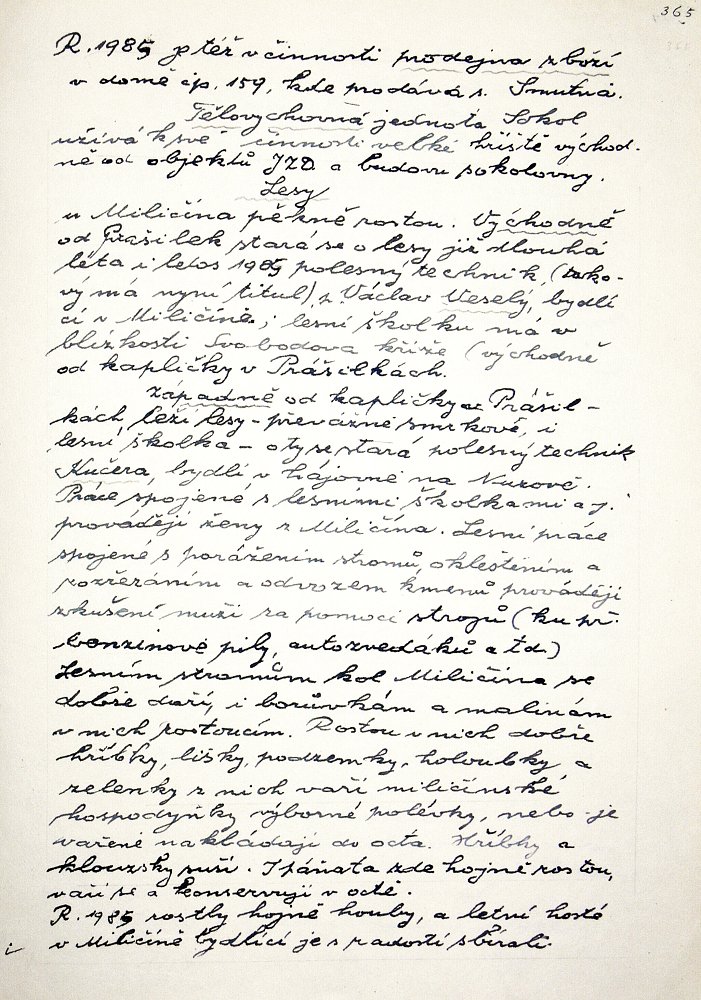 365
R. 1985 je též v činnosti prodejna zboží
v domě čp. 159, kde prodává s. Smutná.
Tělovychovná jednota Sokol
užívá k své činnosti velké hřiště východ-
ně od objektů JZD a budovu sokolovny.
Lesy
u Miličína pěkně rostou. Východně
od Prašilek stará se o lesy již dlouhá
léta i letos 1985 polesný technik (tako-
vý má nyní titul), s. Václav Veselý, bydlí
cí v Miličíně; lesní školku má v
blízkosti Svobodova kříže (východně
od kapličky v Prášilkách.
Západně od kapličky v Prášil-
kách leží lesy - převážně smrkové, i
lesní školka - o ty se stará polesný technik
Kučera, bydlí v hájovně na Nuzově.
Práce spojené s lesními školkami a j.
provádějí ženy z Miličína. Lesní práce
spojené s porážením stromů, okleštěním a
rozřezáním a odvozem kmenů provádějí
zkušení muži za pomoci strojů (ku př.
benzinové pily, autozvedáků a t.d.)
Lesním stromům kol Miličína se
dobře daří, i borůvkám a malinám
v nich rostoucím. Rostou v nich dobře
hříbky, lišky, podzemky, holoubky a
zelenky z nich vaří miličínské
hospodyňky výborné polévky, nebo je
vařené nakládají do octa. Hříbky a
klouzky suší. I páňata zde hojně rostou,
vaří se a konservují v octě.
R. 1985 rostly hojně houby, a letní hosté
i v Miličíně bydlící je s radostí sbírali.